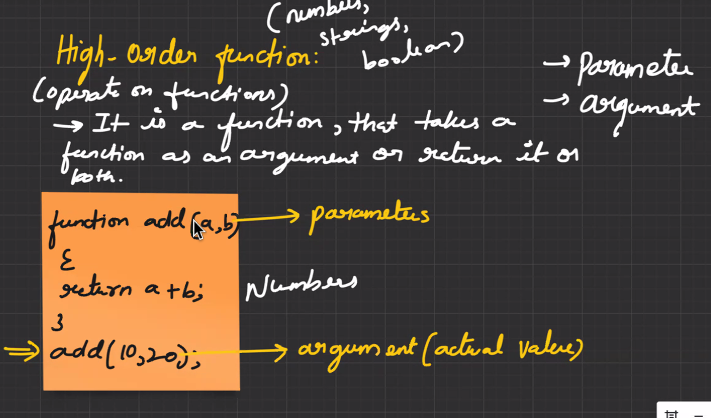 (numbers,
strings,
boolean)
High-Order function:
(operate on functions)
→ It is a function, that takes a
function as an argument or return it or
both.
→ parameter
→ argument
function add(a,b) → parameters
{
return a+b; Numbers
}
⇒ add(10,20); → argument (actual value)